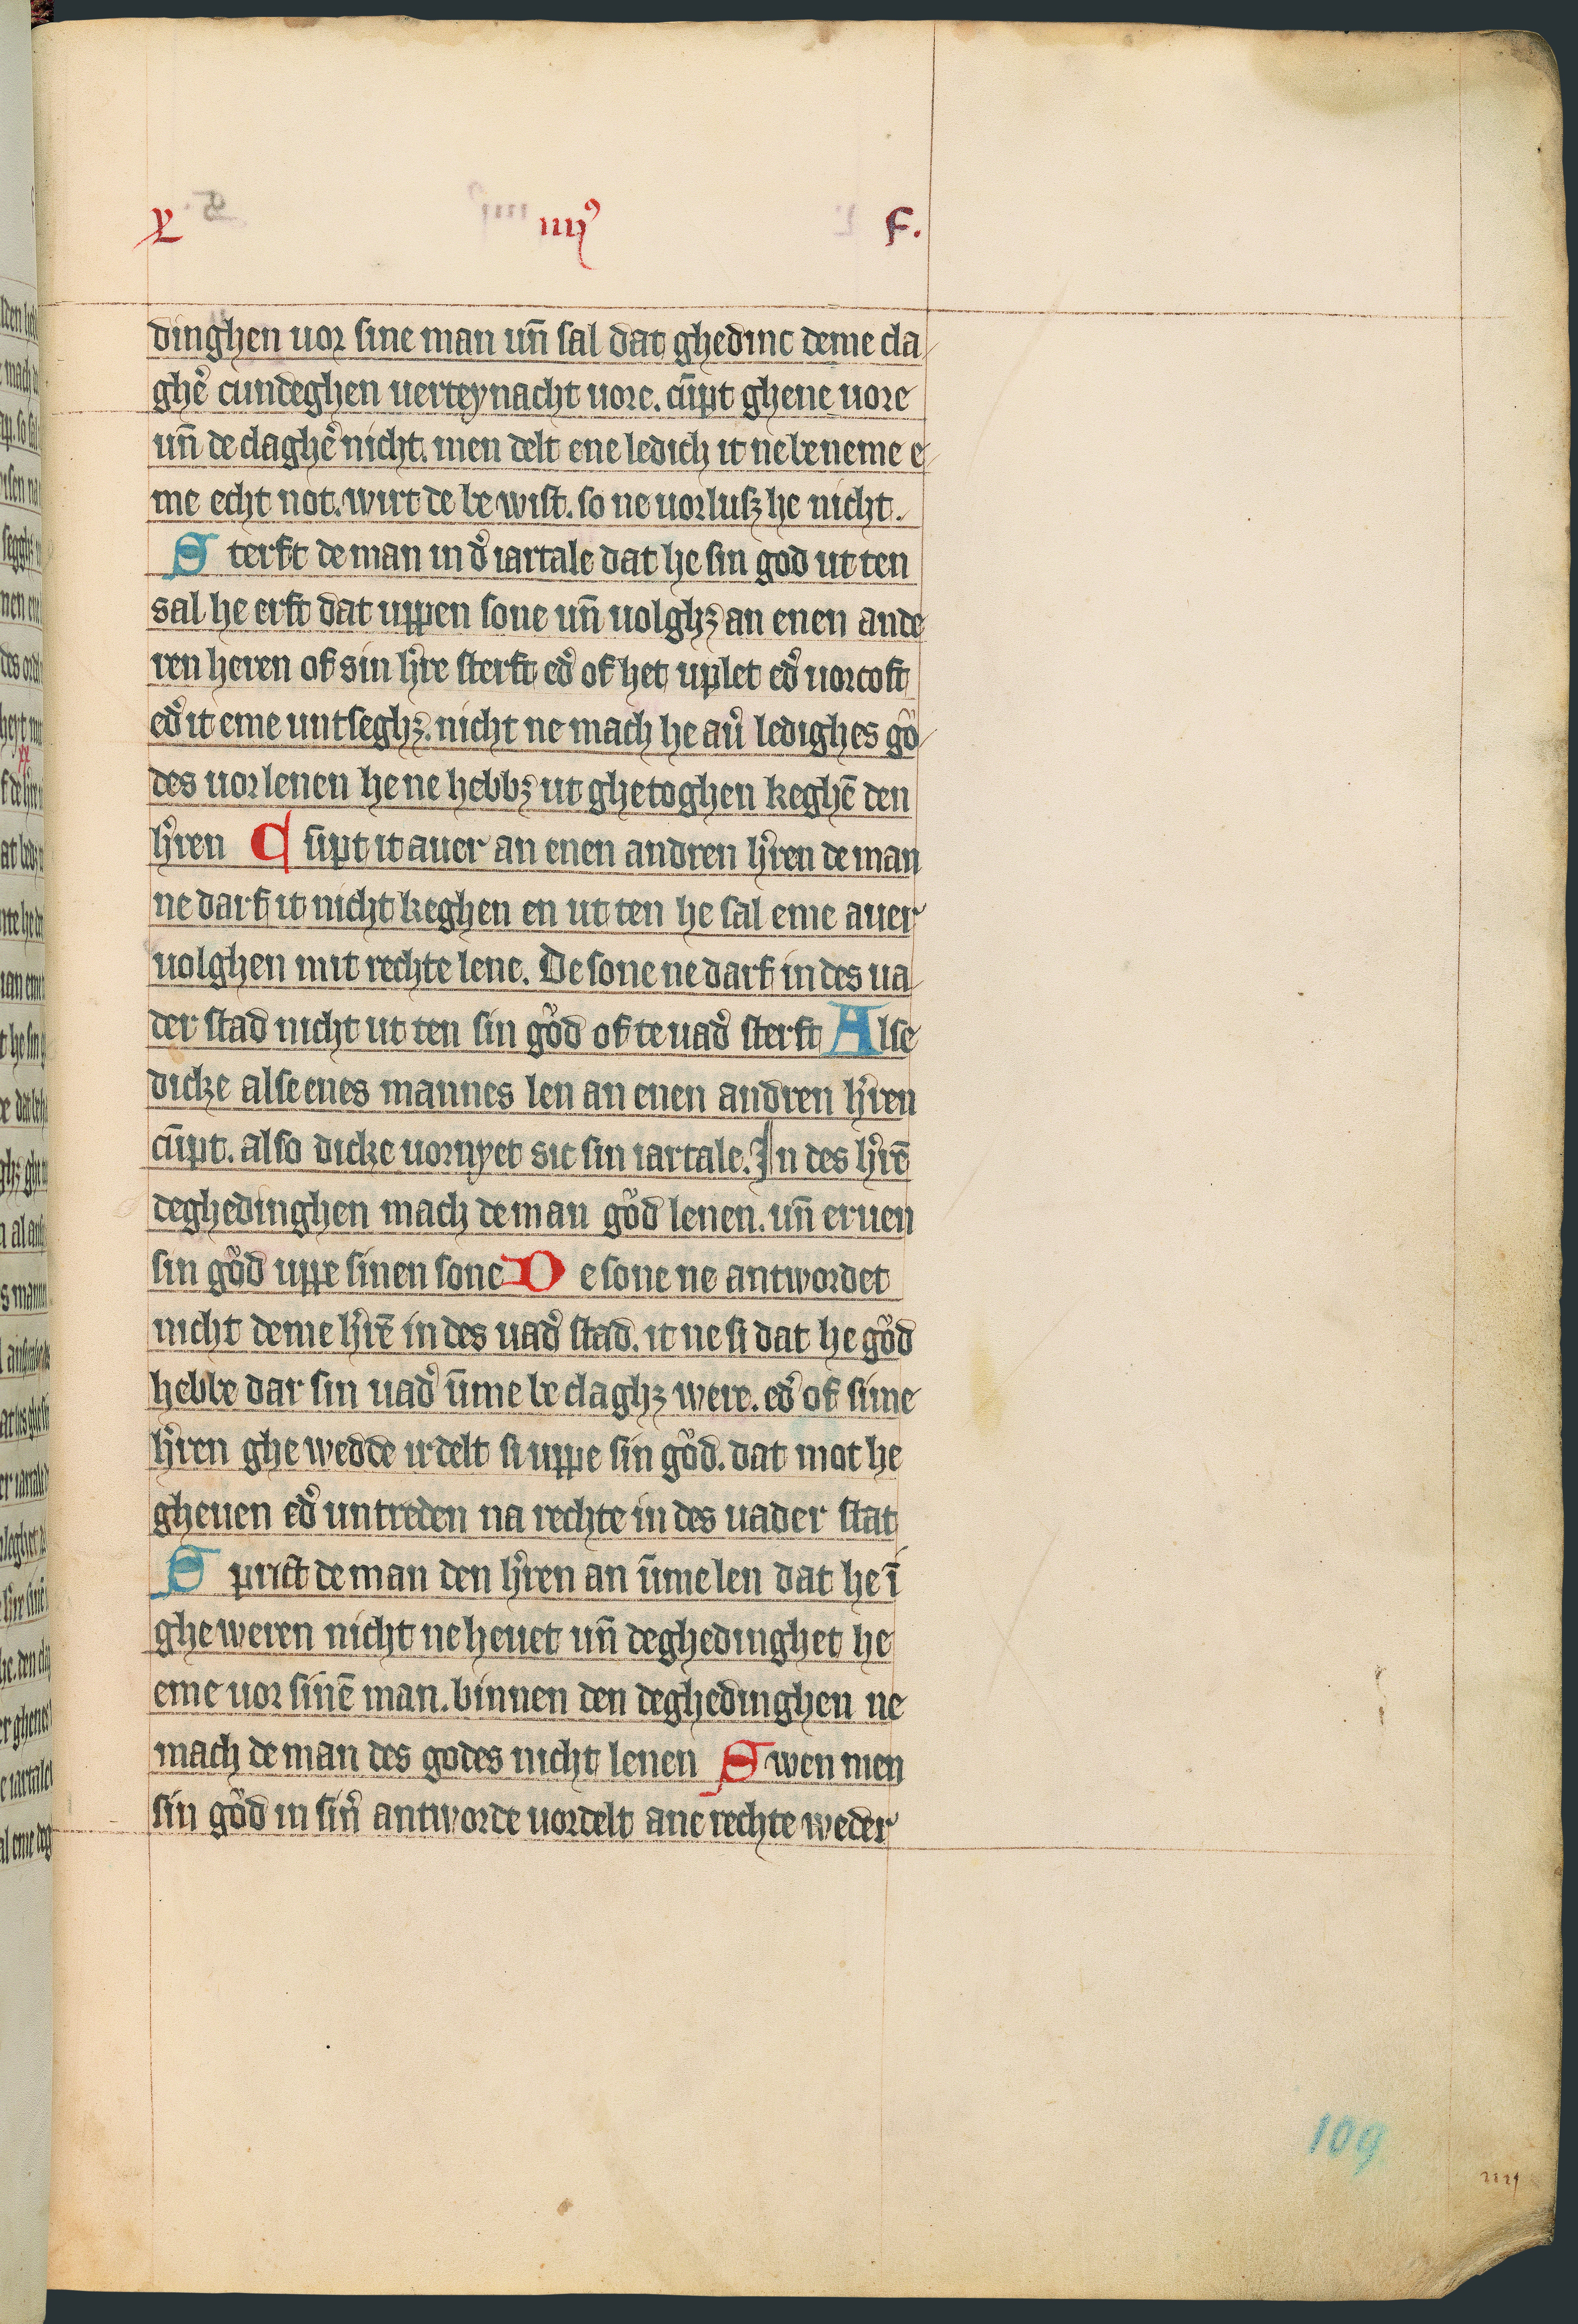 X iiij⁹ F.
dinghen uor sine man un̄ sal dat ghedinc deme cla
ghe᷑ cundeghen uerteynacht uore. cu̅pt ghene uore
un̄ de claghe᷑ nicht. men delt ene ledich it ne beneme e
me echt not. wirt de be wist. so ne uorlusꝫ he nicht.
Sterft de man in d᷑ iartale dat he sin god ut ten
sal he erft dat uppen sone un̄ uolghꝫ an enen ande
ren heren of sin h᷑re sterft ed᷑ of het uplet ed᷑ uorcoft
ed᷑ it eme untseghꝫ. nicht ne mach he au᷑ ledighes gͦo
des uorlenen he ne hebbꝫ ut ghetoghen keghē den
h᷑ren Cu̅pt it auer an enen andren h᷑ren de man
ne darf it nicht keghen en ut ten he sal eme auer
uolghen mit rechte lene. De sone ne darf in des ua
der stad nicht ut ten sin gͦod of te uad᷑ sterft Alse
dicke alse enes mannes len an enen andren h᷑ren
cu̅pt. also dicke uornyet sic sin iartale. In des h᷑rē
deghedinghen mach de man gͦod lenen. un̄ eruen
sin gͦod uppe sinen sone De sone ne antwordet
nicht deme h᷑rē in des uad᷑ stad. it ne si dat he gͦod
hebbe dar sin uad᷑ u̅me be claghꝫ were. ed᷑ of sime
h᷑ren ghe wedde irdelt si uppe sin gͦod. dat mot he
gheuen ed᷑ untreden na rechte in des uader stat
Sprict de man den h᷑ren an u̅me len dat he ī
ghe weren nicht ne heuet un̄ deghedinghet he
eme uor sinē man. binnen den deghedinghen ne
mach de man des godes nicht lenen Swen men
sin gͦod in sin᷑ antworde uordelt ane rechte weder
109
iiij